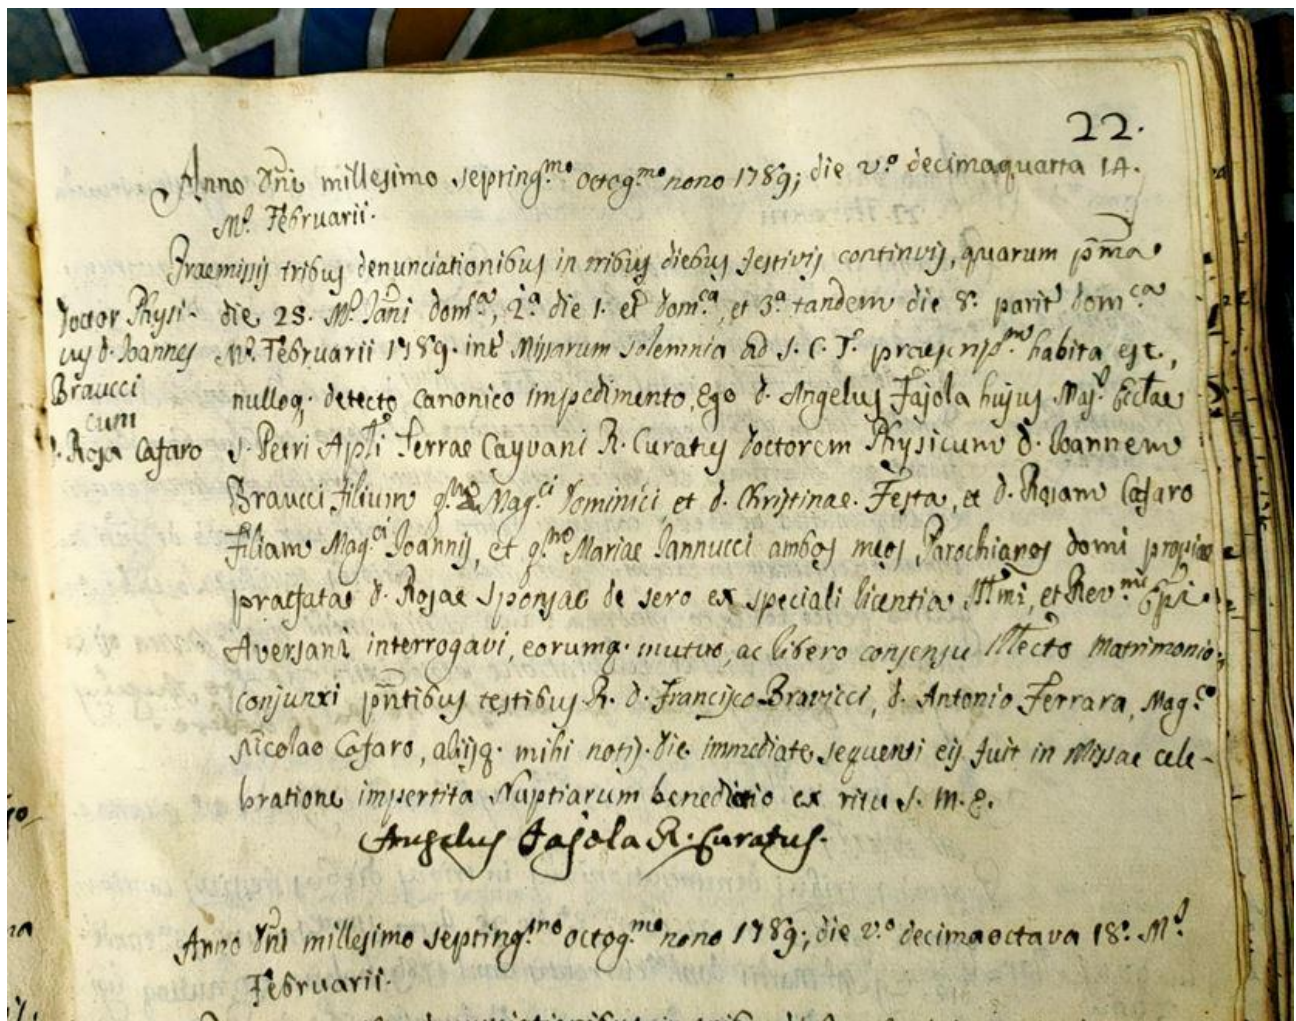 22.
Anno Dñi millesimo septing.mo octog.mo nono 1789; die v.o decimaquarta 14.
M.s Februarii.
Praemissis tribus denunciationibus in tribus diebus festivis continuis, quarum p̃ma
Doctor Physi-
cus d. Joannes
Braucci
cum
d. Rosa Cafaro
die 25. M.s Jañi dom.ca, 2.a die 1. et dom.ca, et 3.a tandem die 8. parit.r dom.ca
M.s Februarii 1789. int.r Missarum solemnia ad S. C. T. praescrip.m habita est,
nulloq. detecto canonico impedimento, Ego d. Angelus Fajola hujus Maj.s Ecclae
S. Petri Apli Terrae Cayvani R. Curatus Doctorem Physicum d. Joannem
Braucci filium q.m Mag.ci Dominici et d. Christinae Festa, et d. Rosam Cafaro
filiam Mag.ci Joannis, et q.m Mariae Iannucci ambos meos Parochianos domi propriae
praefatae d. Rosae Sponsae de sero ex speciali licentia Illmi, et Rev.mi Epi
Aversani interrogavi, eorumq. mutuo, ac libero consensu Matrimonio
conjunxi pñtibus testibus R. d. Francisco Braucci, d. Antonio Ferrara, Mag.co
Nicolao Cafaro, aliisq. mihi notis. die immediate sequenti eis fuit in Missae cele-
bratione impertita Nuptiarum benedictio ex ritu S. M. E.
Angelus Fajola R. Curatus.
Anno Dñi millesimo septing.mo octog.mo nono 1789; die v.o decimaoctava 18. M.s
Februarii.